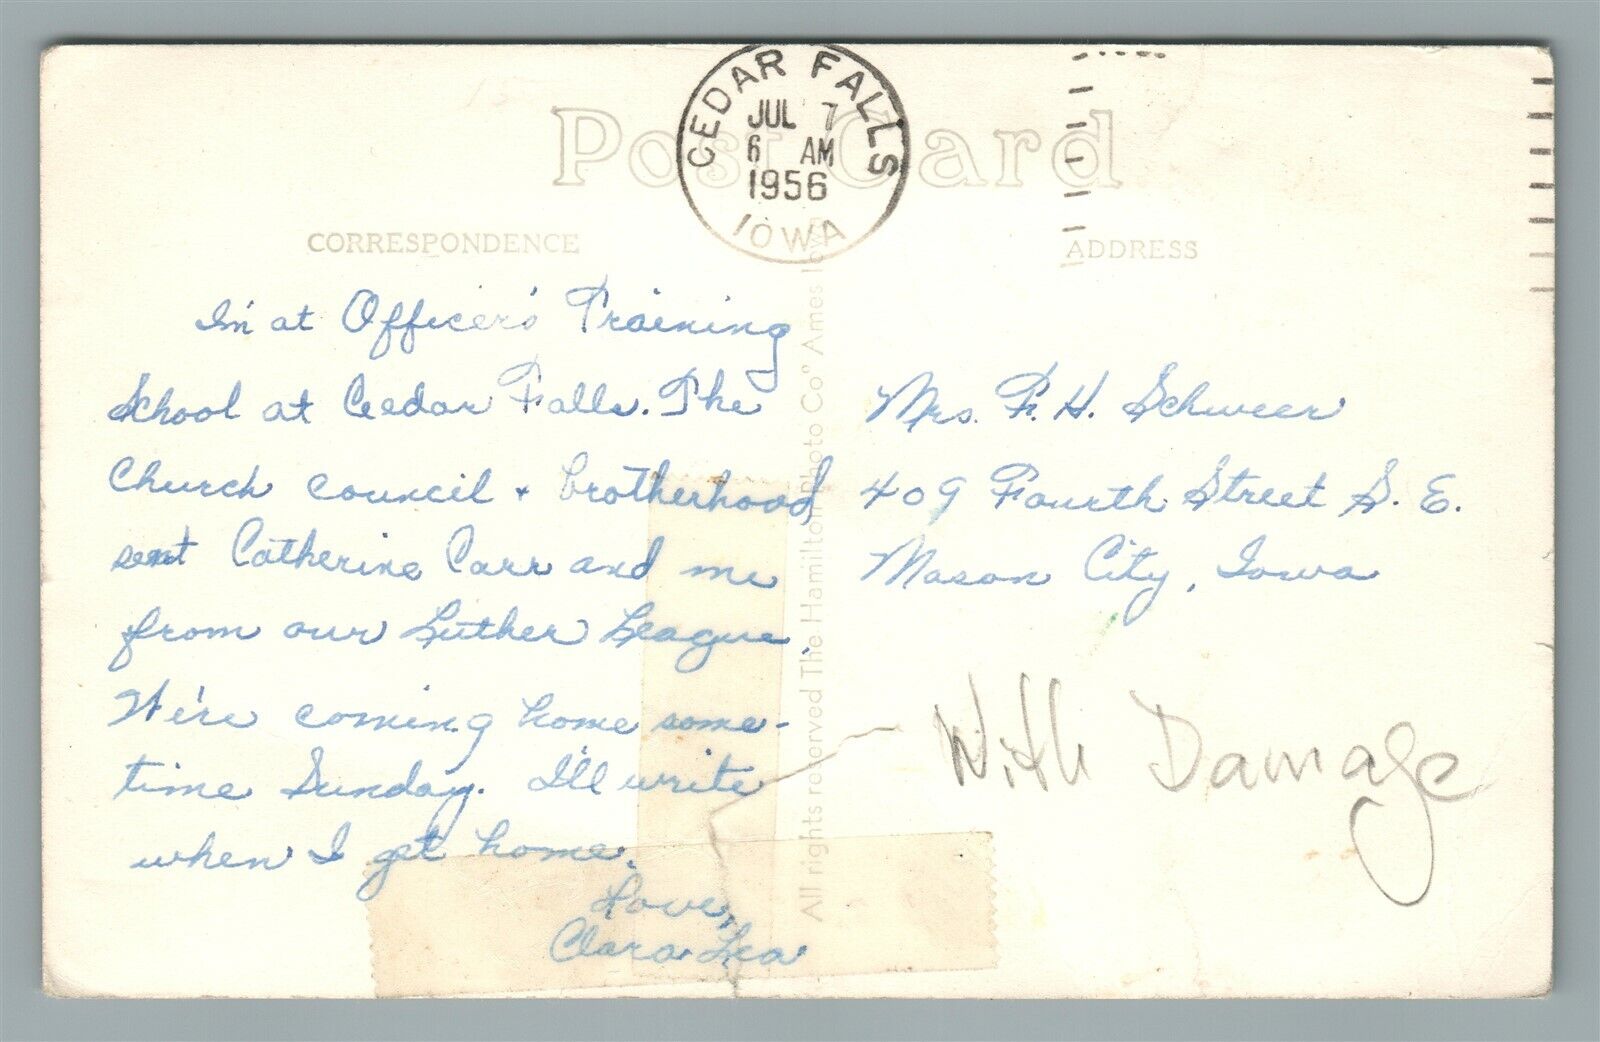 CEDAR FALLS
JUL 7
6 AM
1956
IOWA
Post Card
CORRESPONDENCE
ADDRESS
I'm at Officer's Training
School at Cedar Falls. The
Church council + brotherhood
sent Catherine Carr and me
from our Luther League.
We're coming home some-
time Sunday. I'll write
when I get home.
Love,
Clara Lea
Mrs. F. H. Schweer
409 Fourth Street S. E.
Mason City, Iowa
With Damage
All rights reserved The Hamilton Photo Co" Ames Iowa